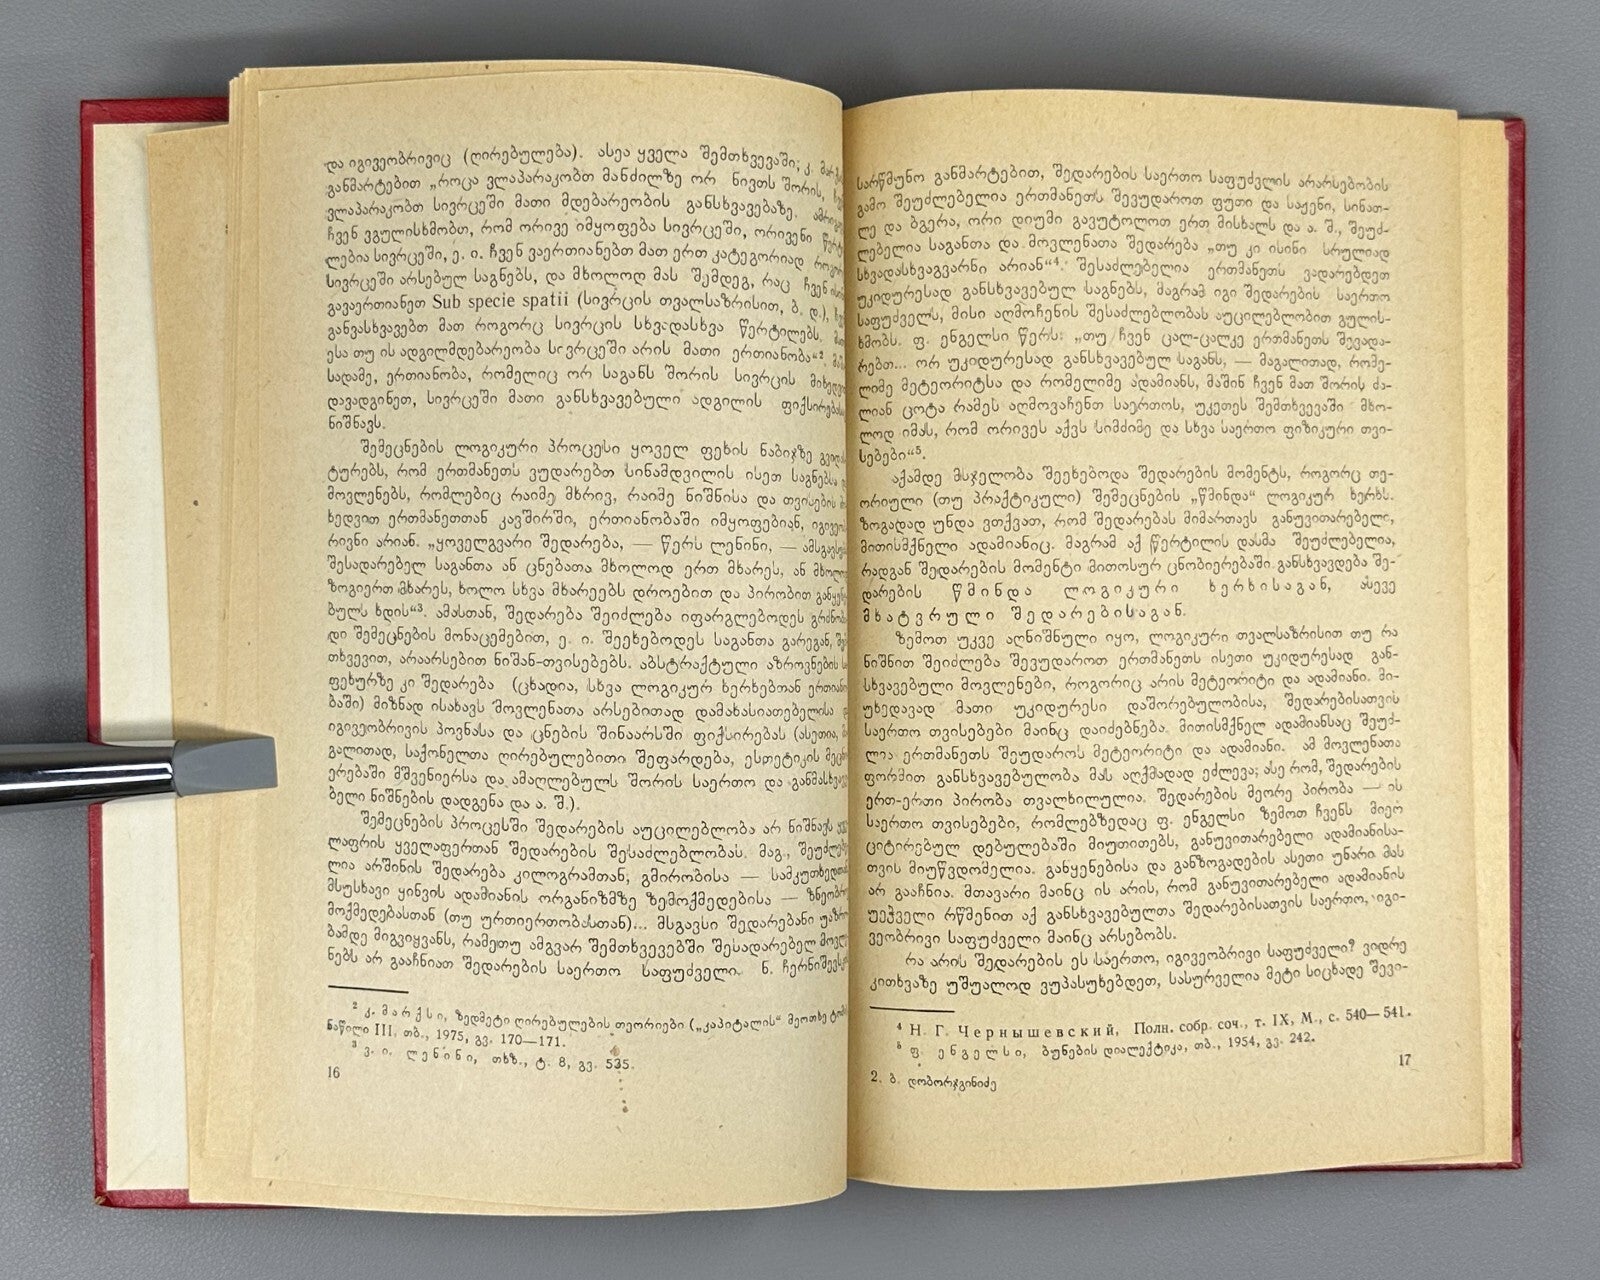 და იგივეობრივიც (ღირებულება). ასეა ყველა შემთხვევაში; კ.
განმარტებით „როცა ვლაპარაკობთ მანძილზე ორ ნივთს შორის,
ვლაპარაკობთ სივრცეში მათი მდებარეობის განსხვავებაზე.
ჩვენ ვგულისხმობთ, რომ ორივე იმყოფება სივრცეში, ორივენი
ლებია სივრცეში, ე. ი. ჩვენ ვაერთიანებთ მათ ერთ კატეგორიად
სივრცეში არსებულ საგნებს, და მხოლოდ მას შემდეგ, რაც ჩვენ
გავაერთიანეთ Sub specie spatii (სივრცის თვალსაზრისით, ბ. დ.),
განვასხვავებთ მათ როგორც სივრცის სხვადასხვა წერტილებს.
ესა თუ ის ადგილმდებარეობა სივრცეში არის მათი ერთიანობა“².
სადამე, ერთიანობა, რომელიც ორ საგანს შორის სივრცის
დავადგინეთ, სივრცეში მათი განსხვავებული ადგილის
ნიშნავს.
შემეცნების ლოგიკური პროცესი ყოველ ფეხის ნაბიჯზე
ტურებს, რომ ერთმანეთს ვუდარებთ სინამდვილის ისეთ
მოვლენებს, რომლებიც რაიმე მხრივ, რაიმე ნიშნისა და თვისების
ხედვით ერთმანეთთან კავშირში, ერთიანობაში იმყოფებიან,
რივნი არიან. „ყოველგვარი შედარება, — წერს ლენინი, —
შესადარებელ საგანთა ან ცნებათა მხოლოდ ერთ მხარეს, ან
ზოგიერთ მხარეს, ხოლო სხვა მხარეებს დროებით და პირობით
ბულს ხდის“³. ამასთან, შედარება შეიძლება იფარგლებოდეს
დი შემეცნების მონაცემებით, ე. ი. შეეხებოდეს საგანთა გარეგან,
თხვევით, არაარსებით ნიშან-თვისებებს. აბსტრაქტული აზროვნების
ფეხურზე კი შედარება (ცხადია, სხვა ლოგიკურ ხერხებთან
ბაში) მიზნად ისახავს მოვლენათა არსებითად დამახასიათებელისა
იგივეობრივის პოვნასა და ცნების შინაარსში ფიქსირებას (ასეთია,
გალითად, საქონელთა ღირებულებითი შეფარდება, ესთეტიკის
ერებაში მშვენიერსა და ამაღლებულს შორის საერთო და
ბელი ნიშნების დადგენა და ა. შ.).
შემეცნების პროცესში შედარების აუცილებლობა არ ნიშნავს
ლაფრის ყველაფერთან შედარების შესაძლებლობას. მაგ.,
ლია არშინის შედარება კილოგრამთან, გმირობისა —
მსუსხავი ყინვის ადამიანის ორგანიზმზე ზემოქმედებისა —
მოქმედებასთან (თუ ურთიერთობასთან)... მსგავსი შედარებანი
ბამდე მიგვიყვანს, რამეთუ ამგვარ შემთხვევებში შესადარებელ
ნებს არ გააჩნიათ შედარების საერთო საფუძველი. ნ.
² კ. მარქსი, ზედმეტი ღირებულების თეორიები („კაპიტალის“ მეოთხე
ნაწილი III, თბ., 1975, გვ. 170—171.
³ ვ. ი. ლენინი, თხზ., ტ. 8, გვ. 535.
16
სარწმუნო განმარტებით, შედარების საერთო საფუძვლის არარსებობის
გამო შეუძლებელია ერთმანეთს შევუდაროთ ფუთი და საჟენი, სინათ-
ლე და ბგერა, ორი დიუმი გავუტოლოთ ერთ მისხალს და ა. შ., შეუძ-
ლებელია საგანთა და მოვლენათა შედარება „თუ კი ისინი სრულიად
სხვადასხვაგვარნი არიან“⁴. შესაძლებელია ერთმანეთს ვადარებდეთ
უკიდურესად განსხვავებულ საგნებს, მაგრამ იგი შედარების საერთო
საფუძველს, მისი აღმოჩენის შესაძლებლობას აუცილებლობით გულის-
ხმობს. ფ. ენგელსი წერს: „თუ ჩვენ ცალ-ცალკე ერთმანეთს შევადა-
რებთ... ორ უკიდურესად განსხვავებულ საგანს, — მაგალითად, რომე-
ლიმე მეტეორიტსა და რომელიმე ადამიანს, მაშინ ჩვენ მათ შორის ძა-
ლიან ცოტა რამეს აღმოვაჩენთ საერთოს, უკეთეს შემთხვევაში მხო-
ლოდ იმას, რომ ორივეს აქვს სიმძიმე და სხვა საერთო ფიზიკური თვი-
სებები“⁵.
აქამდე მსჯელობა შეეხებოდა შედარების მომენტს, როგორც თე-
ორიული (თუ პრაქტიკული) შემეცნების „წმინდა“ ლოგიკურ ხერხს.
ზოგადად უნდა ვთქვათ, რომ შედარებას მიმართავს განუვითარებელი,
მითისმქნელი ადამიანიც. მაგრამ აქ წერტილის დასმა შეუძლებელია,
რადგან შედარების მომენტი მითოსურ ცნობიერებაში განსხვავდება შე-
დარების წმინდა ლოგიკური ხერხისაგან, ასევე
მხატვრული შედარებისაგან.
ზემოთ უკვე აღნიშნული იყო, ლოგიკური თვალსაზრისით თუ რა
ნიშნით შეიძლება შევუდაროთ ერთმანეთს ისეთი უკიდურესად გან-
სხვავებული მოვლენები, როგორიც არის მეტეორიტი და ადამიანი. მი-
უხედავად მათი უკიდურესი დაშორებულობისა, შედარებისათვის
საერთო თვისებები მაინც დაიძებნება. მითისმქნელ ადამიანსაც შეუძ-
ლია ერთმანეთს შეუდაროს მეტეორიტი და ადამიანი. ამ მოვლენათა
ფორმით განსხვავებულობა მას აღქმადად ეძლევა; ასე რომ, შედარების
ერთ-ერთი პირობა თვალხილულია. შედარების მეორე პირობა — ის
საერთო თვისებები, რომლებზედაც ფ. ენგელსი ზემოთ ჩვენს მიერ
ციტირებულ დებულებაში მიუთითებს, განუვითარებელი ადამიანისა-
თვის მიუწვდომელია. განყენებისა და განზოგადების ასეთი უნარი მას
არ გააჩნია. მთავარი მაინც ის არის, რომ განუვითარებელი ადამიანის
უეჭველი რწმენით აქ განსხვავებულთა შედარებისათვის საერთო, იგი-
ვეობრივი საფუძველი მაინც არსებობს.
რა არის შედარების ეს საერთო, იგივეობრივი საფუძველი? ვიდრე
კითხვაზე უშუალოდ ვუპასუხებდეთ, სასურველია მეტი სიცხადე შევი-
⁴ Н. Г. Чернышевский, Полн. собр. соч., т. IX, М., с. 540—541.
⁵ ფ. ენგელსი, ბუნების დიალექტიკა, თბ., 1954, გვ. 242.
2. ბ. დობორჯგინიძე
17